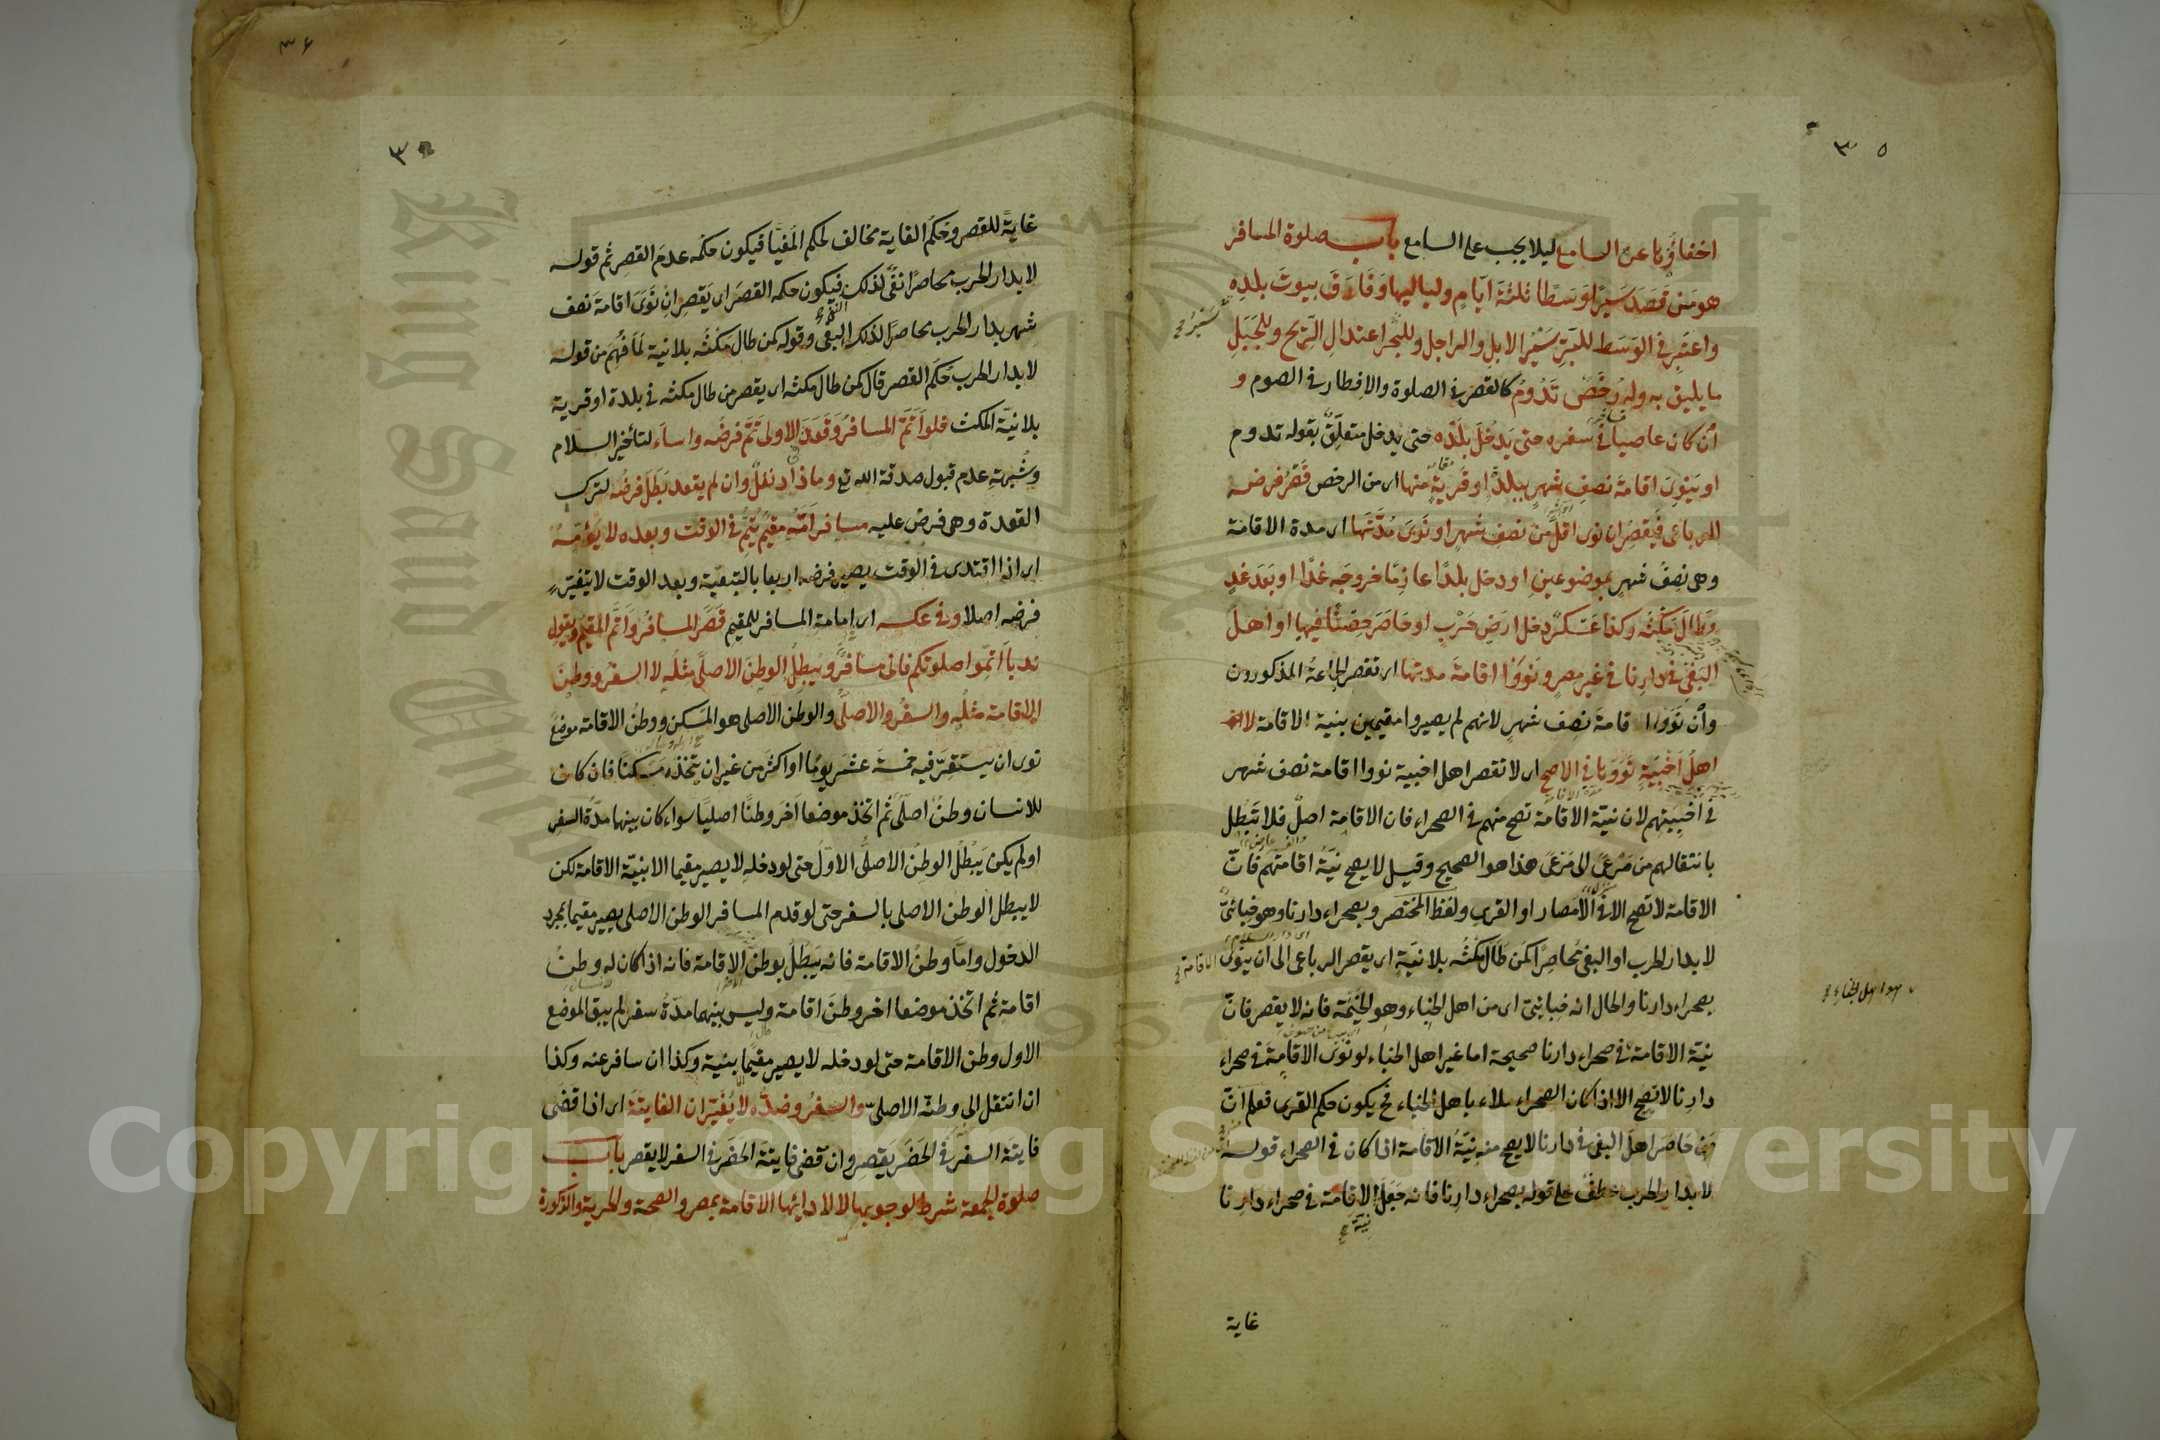 ٣٥
اخفاؤها عن السامع ليلا يجب على السامع باب صلوة المسافر
هو من قصد سيرا وسطا ثلثة ايام ولياليها وفارق بيوت بلده
واعتبر في الوسط للبر سير الابل والراجل وللبحر اعتدال الريح وللجبل
ما يليق به وله رخص تدوم كالقصر في الصلوة والافطار في الصوم و
ان كان عاصيا في سفره حتى يدخل بلده حتى يدخل متعلق بقوله تدوم
او ينوى اقامة نصف شهر ببلد او قرية منها اى من الرخص قصر فرضه
الرباعى فيقصر ان نوى اقل من نصف شهر او نوى مدتها اى مدة الاقامة
وهى نصف شهر بموضوعين او دخل بلدا عازما خروجه غدا او بعد غد
وطال مكثه وكذا عسكر دخل ارض حرب او حاصر حصنا فيها او اهل
البغى في دارنا في غير مصر ونووا اقامة مدتها اى تقصر الجماعة المذكورون
وان نووا اقامة نصف شهر لانهم لم يصيروا مقيمين بنية الاقامة لا
اهل اخبية نووها في الاصح اى لا تقصر اهل اخبية نووا اقامة نصف شهر
في اخبيتهم لان نية الاقامة تصح منهم في الصحراء فان الاقامة اصل فلا تبطل
بانتقالهم من مرعى الى مرعى هذا هو الصحيح وقيل لا يصح نية اقامتهم فان
الاقامة لا تصح الا في الامصار او القرى ولفظ المختصر وبصحراء دارنا وهو خبائى
لا بدار الحرب او البغى محاصرا كمن طال مكثه بلا نية اى يقصر الرباعى الى ان ينوى
بصحراء دارنا والحال انه خبائى اى من اهل الخباء وهو الخيمة فانه لا يقصر فان
نية الاقامة في صحراء دارنا صحيحة اما غير اهل الخباء لو نوى الاقامة في صحراء
دارنا لا تصح الا اذا كان الصحراء ملاء باهل الخباء فح يكون حكم القرى فعلم ان
من حاصر اهل البغى في دارنا لا يصح منه نية الاقامة اذا كان في الصحراء قوله
لا بدار الحرب عطف على قوله بصحراء دارنا فانه جعل الاقامة في صحراء دارنا
نية
غاية
٣٦
٣٥
غاية للقصر وحكم الغاية مخالف لحكم المغيا فيكون حكمه عدم القصر ثم قوله
لا بدار الحرب محاصرا نفى لذلك فيكون حكمه القصر اى يقصر ان نوى اقامة نصف
شهر بدار الحرب محاصرا لذلك البغى وقوله كمن طال مكثه بلا نية لما فهم من قوله
لا بدار الحرب حكم القصر قال كمن طال مكثه اى يقصر من طال مكثه في بلدة او قرية
بلا نية المكث فلو اتم المسافر وقعد الاولى تم فرضه واساء لتأخير السلام
وشبهة عدم قبول صدقة الله تع وما زاد نفل وان لم يقعد بطل فرضه لترك
القعدة وهى فرض عليه مسافر امه مقيم يتم في الوقت وبعده لا يؤمه
اى اذا اقتدى في الوقت يصير فرضه اربعا بالتبعية وبعد الوقت لا يتغير
فرضه اصلا وفي عكسه اى امامة المسافر للمقيم قصر المسافر واتم المقيم ويقول
ندبا اتموا صلوتكم فانى مسافر ويبطل الوطن الاصلى مثله لا السفر ووطن
الاقامة مثله والسفر والاصلى والوطن الاصلى هو المسكن ووطن الاقامة موضع
نوى ان يستقر فيه خمسة عشر يوما او اكثر من غير ان يتخذه مسكنا فان كان
للانسان وطن اصلى ثم اتخذ موضعا اخر وطنا اصليا سواء كان بينهما مدة السفر
او لم يكن يبطل الوطن الاصلى الاول حتى لو دخله لا يصير مقيما الا بنية الاقامة لكن
لا يبطل الوطن الاصلى بالسفر حتى لو قدم المسافر الوطن الاصلى يصير مقيما بمجرد
الدخول واما وطن الاقامة فانه يبطل بوطن الاقامة فانه اذا كان له وطن
اقامة ثم اتخذ موضعا اخر وطن اقامة وليس بينهما مدة سفر لم يبق الموضع
الاول وطن الاقامة حتى لو دخله لا يصير مقيما بنية وكذا ان سافر عنه وكذا
ان انتقل الى وطنه الاصلى والسفر وضده لا يغيران الفايتة اى اذا قضى
فايتة السفر في الحضر يقصر وان قضى فايتة الحضر في السفر لا يقصر باب
صلوة الجمعة شرط لوجوبها لا لادائها الاقامة بمصر والصحة والحرية والذكورة
Copyright © King Saud University